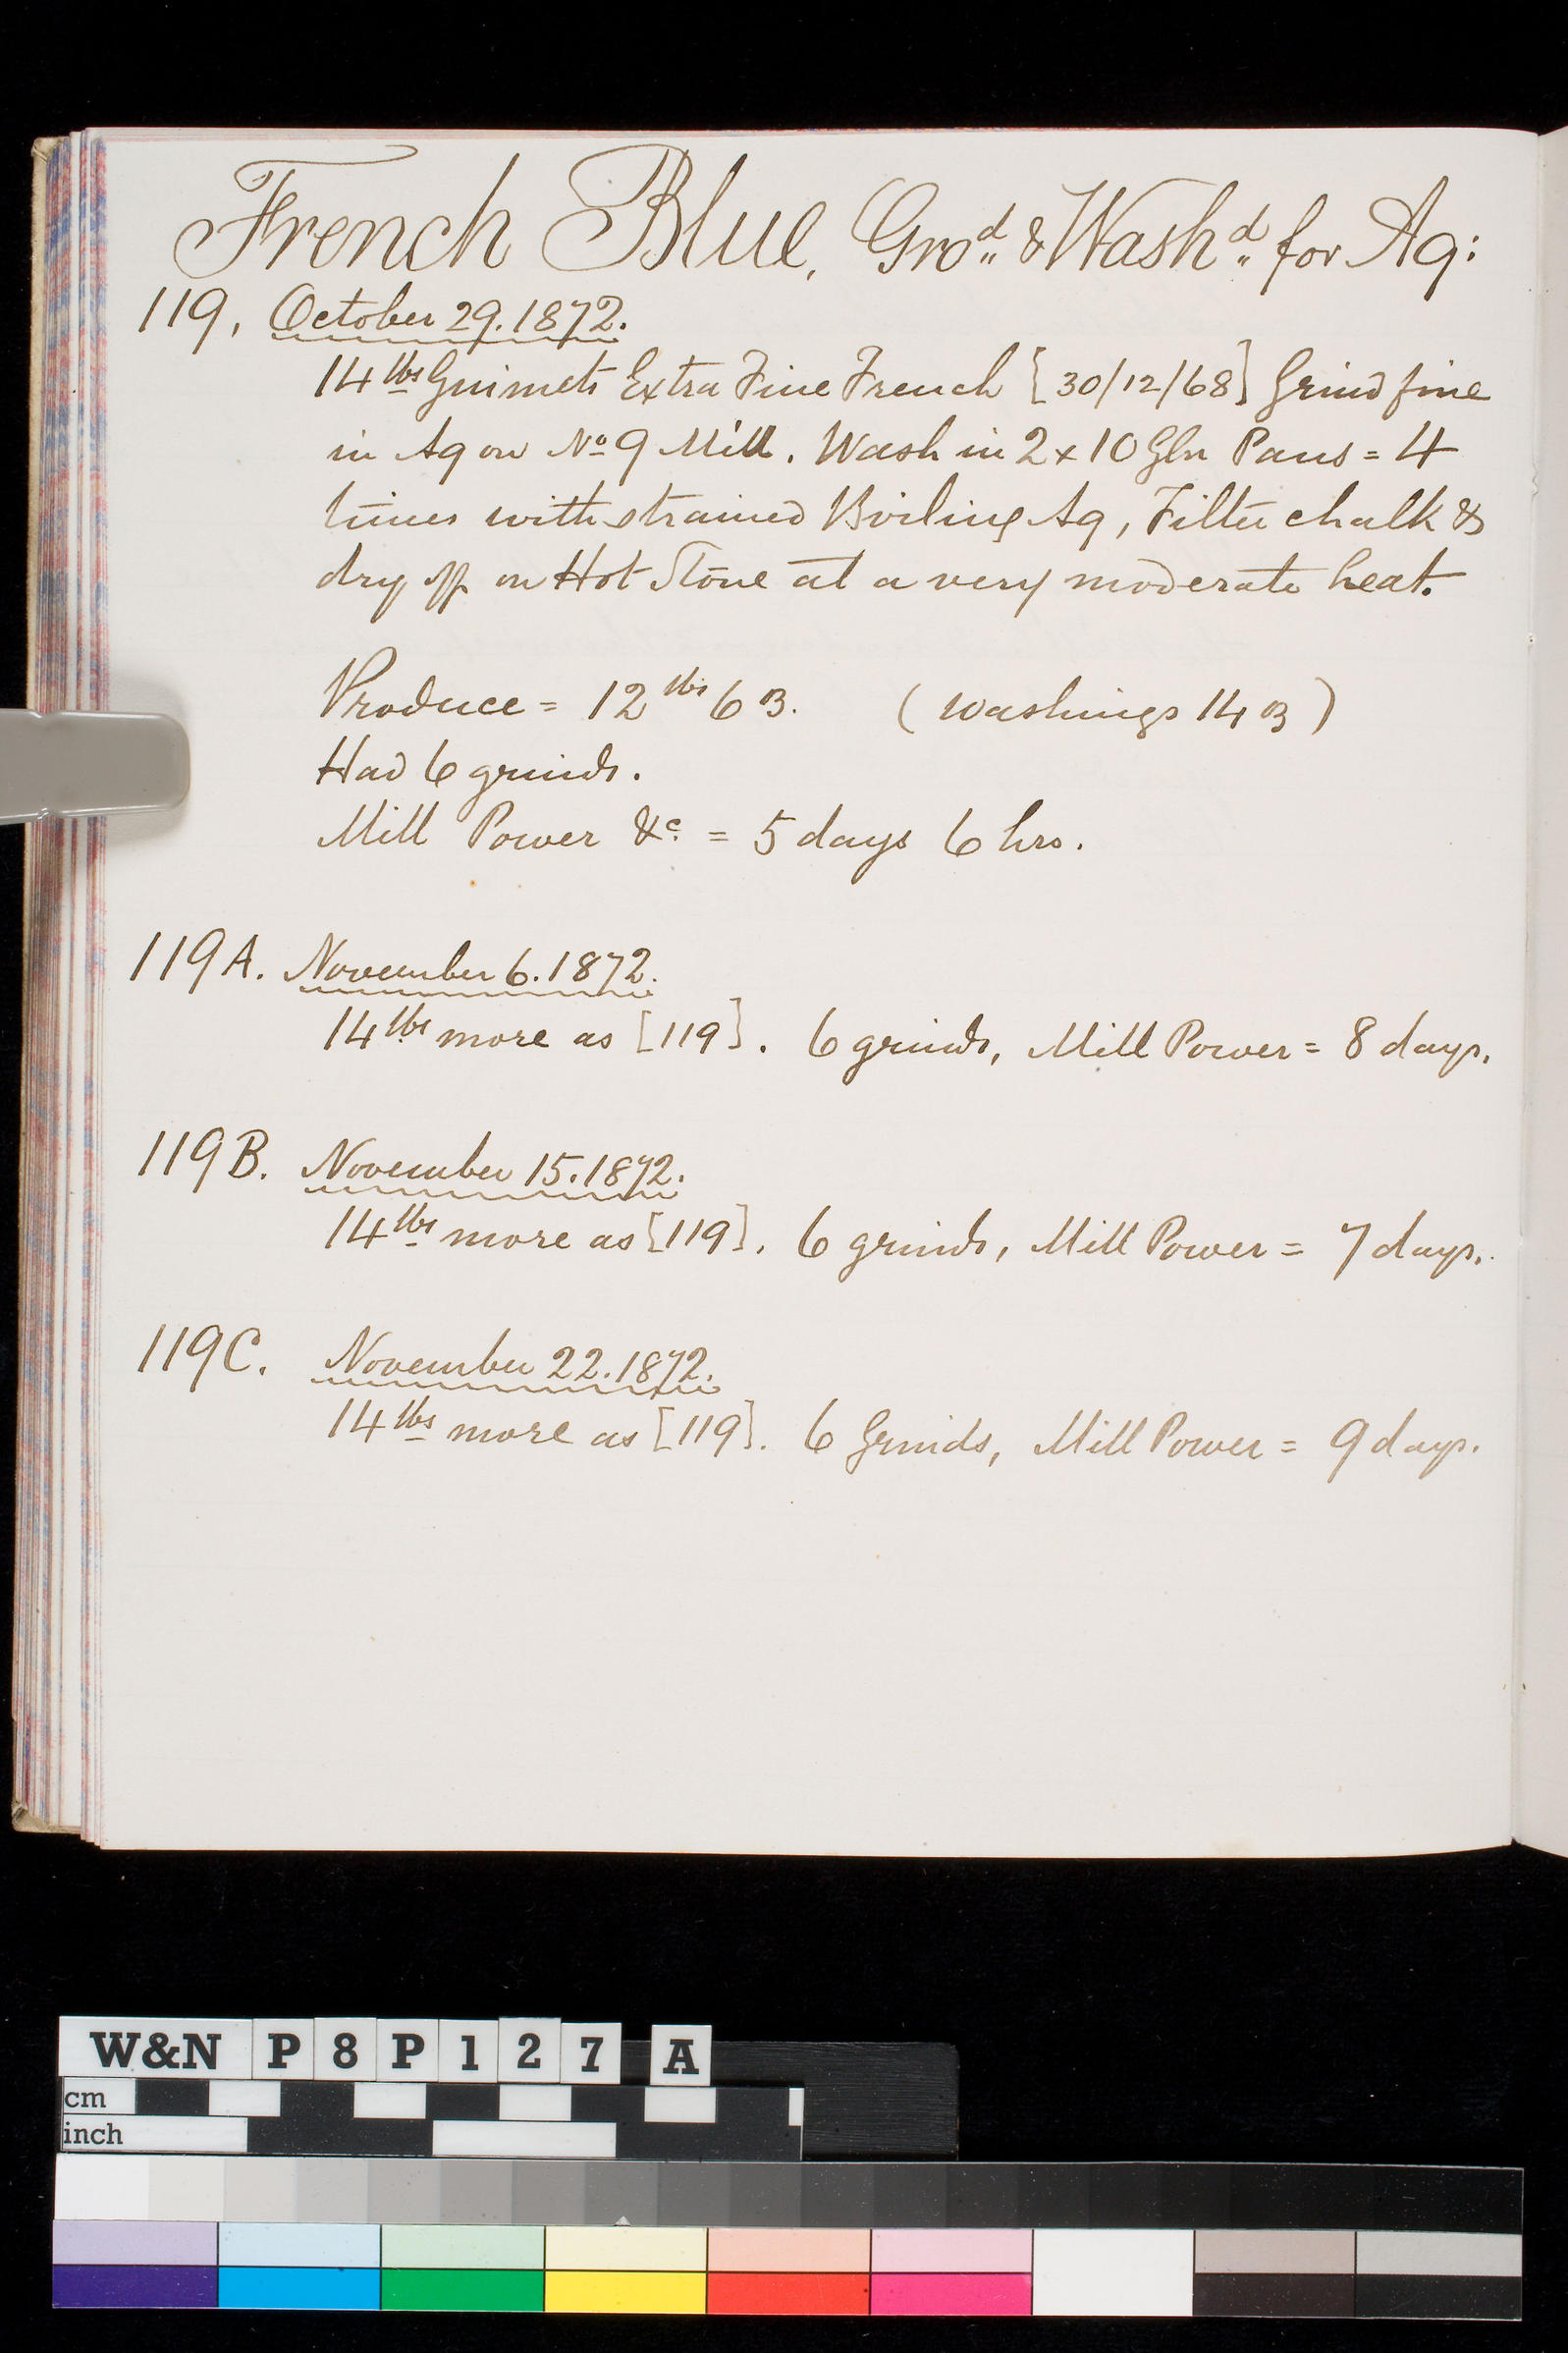 French Blue, Gro.d & Wash.d for Aq:
119, October 29. 1872.
14 lbs Guimets Extra Fine French [30/12/68] Grind fine
in Aq on No 9 Mill. Wash in 2 x 10 Gln Pans = 4
times with strained Boiling Aq, Filter chalk &
dry off on Hot Stone at a very moderate heat.
Produce = 12 lbs 6 ℥. (washings 14 ℥)
Had 6 grinds.
Mill Power &c. = 5 days 6 hrs.
119A. November 6. 1872.
14 lbs more as [119]. 6 grinds, Mill Power = 8 days.
119B. November 15. 1872.
14 lbs more as [119]. 6 grinds, Mill Power = 7 days.
119C. November 22. 1872.
14 lbs more as [119]. 6 Grinds, Mill Power = 9 days.
W&N P8P127 A
cm
inch